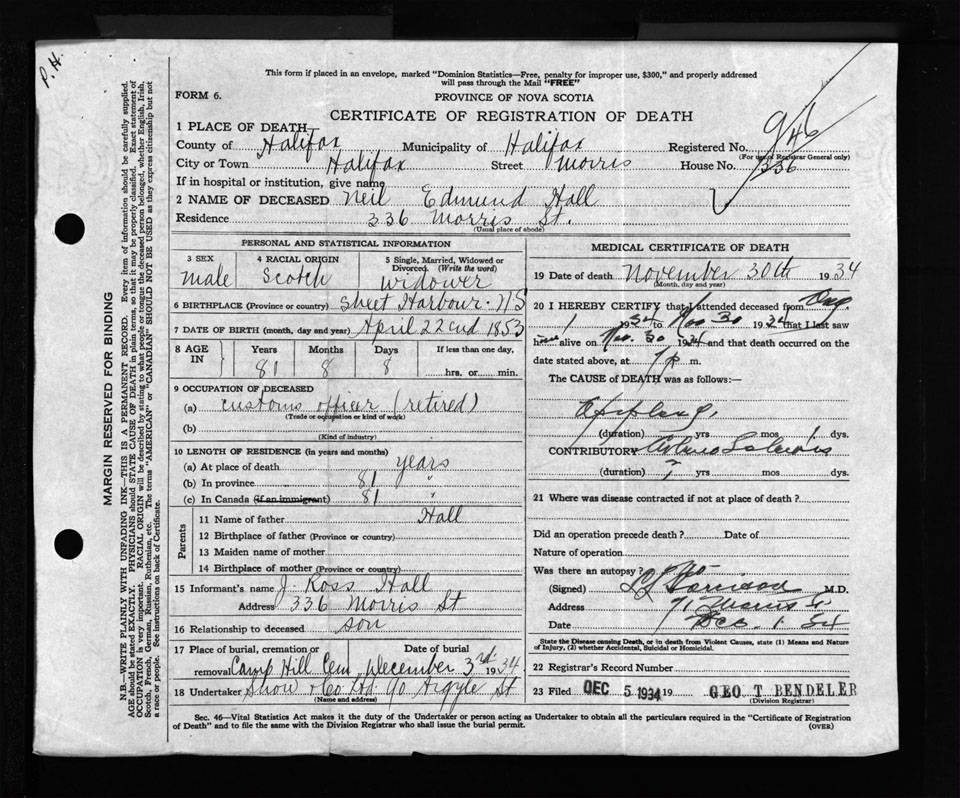 P. H.
This form if placed in an envelope, marked "Dominion Statistics—Free, penalty for improper use, $300," and properly addressed
will pass through the Mail "FREE"
FORM 6.
PROVINCE OF NOVA SCOTIA
CERTIFICATE OF REGISTRATION OF DEATH
946
1 PLACE OF DEATH
County of Halifax Municipality of Halifax Registered No.
(For use of Registrar General only)
City or Town Halifax Street Morris House No. 336
If in hospital or institution, give name
2 NAME OF DECEASED Neil Edmund Hall
Residence 336 Morris St.
(Usual place of abode)
PERSONAL AND STATISTICAL INFORMATION
3 SEX 4 RACIAL ORIGIN 5 Single, Married, Widowed or
Divorced. (Write the word)
male Scotch widower
6 BIRTHPLACE (Province or country) Sheet Harbour. N S
7 DATE OF BIRTH (month, day and year) April 22nd 1853
8 AGE IN Years Months Days If less than one day,
81 8 8 hrs. or min.
9 OCCUPATION OF DECEASED
(a) customs officer (retired)
(Trade or occupation or kind of work)
(b)
(Kind of industry)
10 LENGTH OF RESIDENCE (in years and months)
(a) At place of death years
(b) In province 81 "
(c) In Canada (if an immigrant) 81 "
Parents
11 Name of father Hall
12 Birthplace of father (Province or country)
13 Maiden name of mother
14 Birthplace of mother (Province or country)
15 Informant's name J. Ross Hall
Address 336 Morris St
16 Relationship to deceased son
17 Place of burial, cremation or Date of burial
removal Camp Hill Cem December 3rd 1934
18 Undertaker Snow & Co Ltd 90 Argyle St
(Name and address)
MEDICAL CERTIFICATE OF DEATH
19 Date of death November 30th 1934
(Month, day and year)
20 I HEREBY CERTIFY that I attended deceased from
1 1934 to Nov 30 1934 that I last saw
h alive on Nov. 30 1934 and that death occurred on the
date stated above, at m.
The CAUSE of DEATH was as follows:—
(duration) yrs mos 1 dys.
CONTRIBUTORY
(duration) ? yrs mos. dys.
21 Where was disease contracted if not at place of death?
Did an operation precede death? Date of
Nature of operation
Was there an autopsy?
(Signed) M.D.
Address
Date Dec. 1. 34
State the Disease causing Death, or in death from Violent Causes, state (1) Means and Nature
of Injury, (2) whether Accidental, Suicidal or Homicidal.
22 Registrar's Record Number
23 Filed DEC 5 1934 19 GEO T BENDELER
(Division Registrar)
Sec. 46—Vital Statistics Act makes it the duty of the Undertaker or person acting as Undertaker to obtain all the particulars required in the "Certificate of Registration
of Death" and to file the same with the Division Registrar who shall issue the burial permit.
(OVER)
MARGIN RESERVED FOR BINDING
N.B.—WRITE PLAINLY WITH UNFADING INK—THIS IS A PERMANENT RECORD. Every item of information should be carefully supplied.
AGE should be stated EXACTLY. PHYSICIANS should STATE CAUSE OF DEATH in plain terms, so that it may be properly classified. Exact statement of
OCCUPATION is very important. RACIAL ORIGIN will be described by stating to what people or tongue the deceased person belonged, whether English, Irish,
Scotch, French, German, Russian, Ruthenian, etc. The terms "AMERICAN" or "CANADIAN" SHOULD NOT BE USED as they express citizenship but not
a race or people. See instructions on back of Certificate.